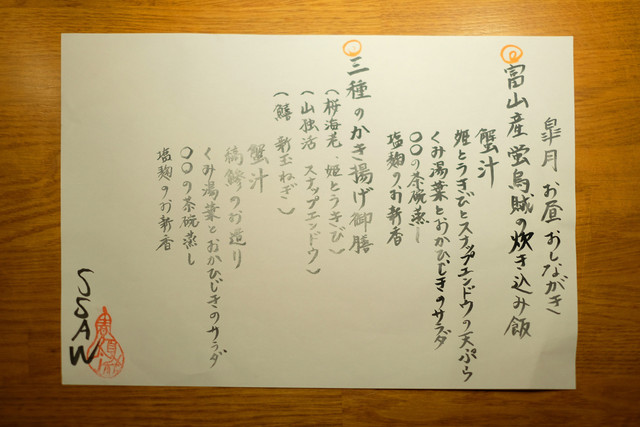 皐月 お昼 おしながき
富山産蛍烏賊の炊き込み飯
蟹汁
姫とうきびとスナップエンドウの天ぷら
くみ湯葉とおかひじきのサラダ
〇〇の茶碗蒸し
塩麹のお新香
三種のかき揚げ御膳
(桜海老・姫とうきび)
(山独活 スナップエンドウ)
(鱚 新玉ねぎ)
蟹汁
縞鯵のお造り
くみ湯葉とおかひじきのサラダ
〇〇の茶碗蒸し
塩麹のお新香
SSAW